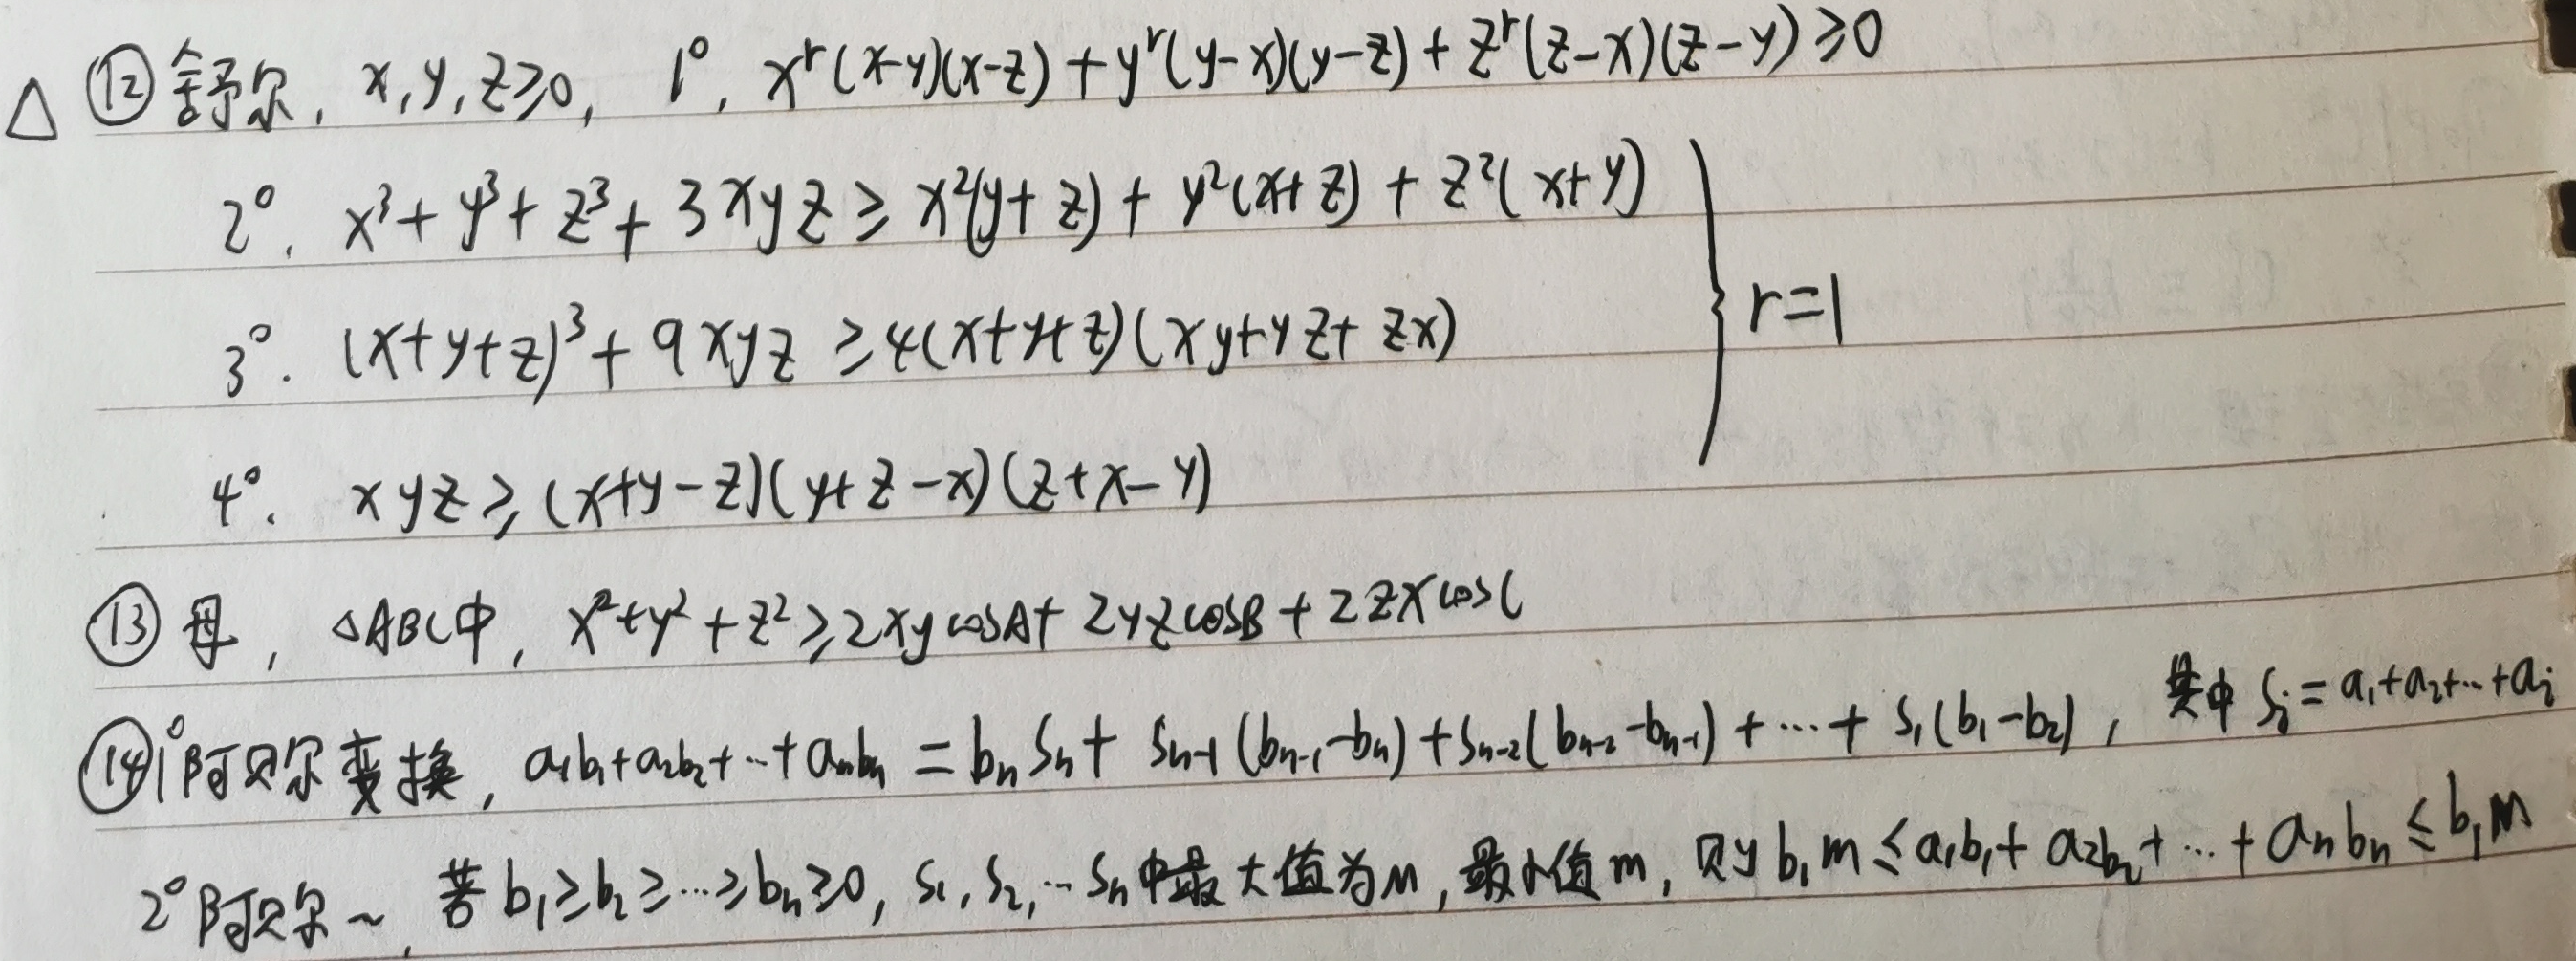 △ ⑫ 舒尔, x,y,z≥0, 1°, xʳ(x-y)(x-z)+yʳ(y-x)(y-z)+zʳ(z-x)(z-y)≥0
2°. x³+y³+z³+3xyz≥x²(y+z)+y²(x+z)+z²(x+y)
3°. (x+y+z)³+9xyz≥4(x+y+z)(xy+yz+zx) } r=1
4°. xyz≥(x+y-z)(y+z-x)(z+x-y)
⑬ 母, △ABC中, x²+y²+z²≥2xycosA+2yzcosB+2zxcosC
⑭ 1°阿贝尔变换, a₁b₁+a₂b₂+…+aₙbₙ=bₙSₙ+Sₙ₋₁(bₙ₋₁-bₙ)+Sₙ₋₂(bₙ₋₂-bₙ₋₁)+…+S₁(b₁-b₂), 其中Sᵢ=a₁+a₂+…+aᵢ
2°阿贝尔~, 若b₁≥b₂≥…≥bₙ≥0, S₁,S₂,…Sₙ中最大值为M, 最小值m, 则b₁m≤a₁b₁+a₂b₂+…+aₙbₙ≤b₁M